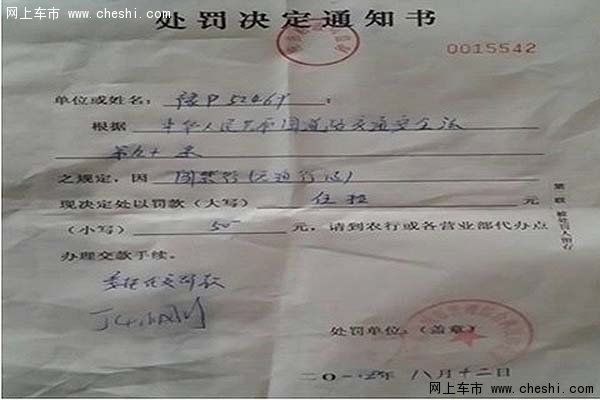 网上车市 www.cheshi.com
处罚决定通知书
0015542
单位或姓名：豫P52469：
根据 中华人民共和国道路交通安全法
第九十条
之规定，因 闯禁行
现决定处以罚款（大写） 伍拾 元
（小写） 50 元，请到农行或各营业部代办点
办理交款手续。
第一联 被处罚人留存
处罚单位：（盖章）
二〇一 年 八月十二日
网上车市 www.cheshi.com